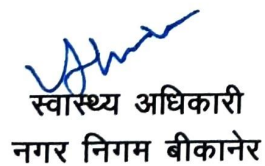 स्वास्थ्य अधिकारी
नगर निगम बीकानेर